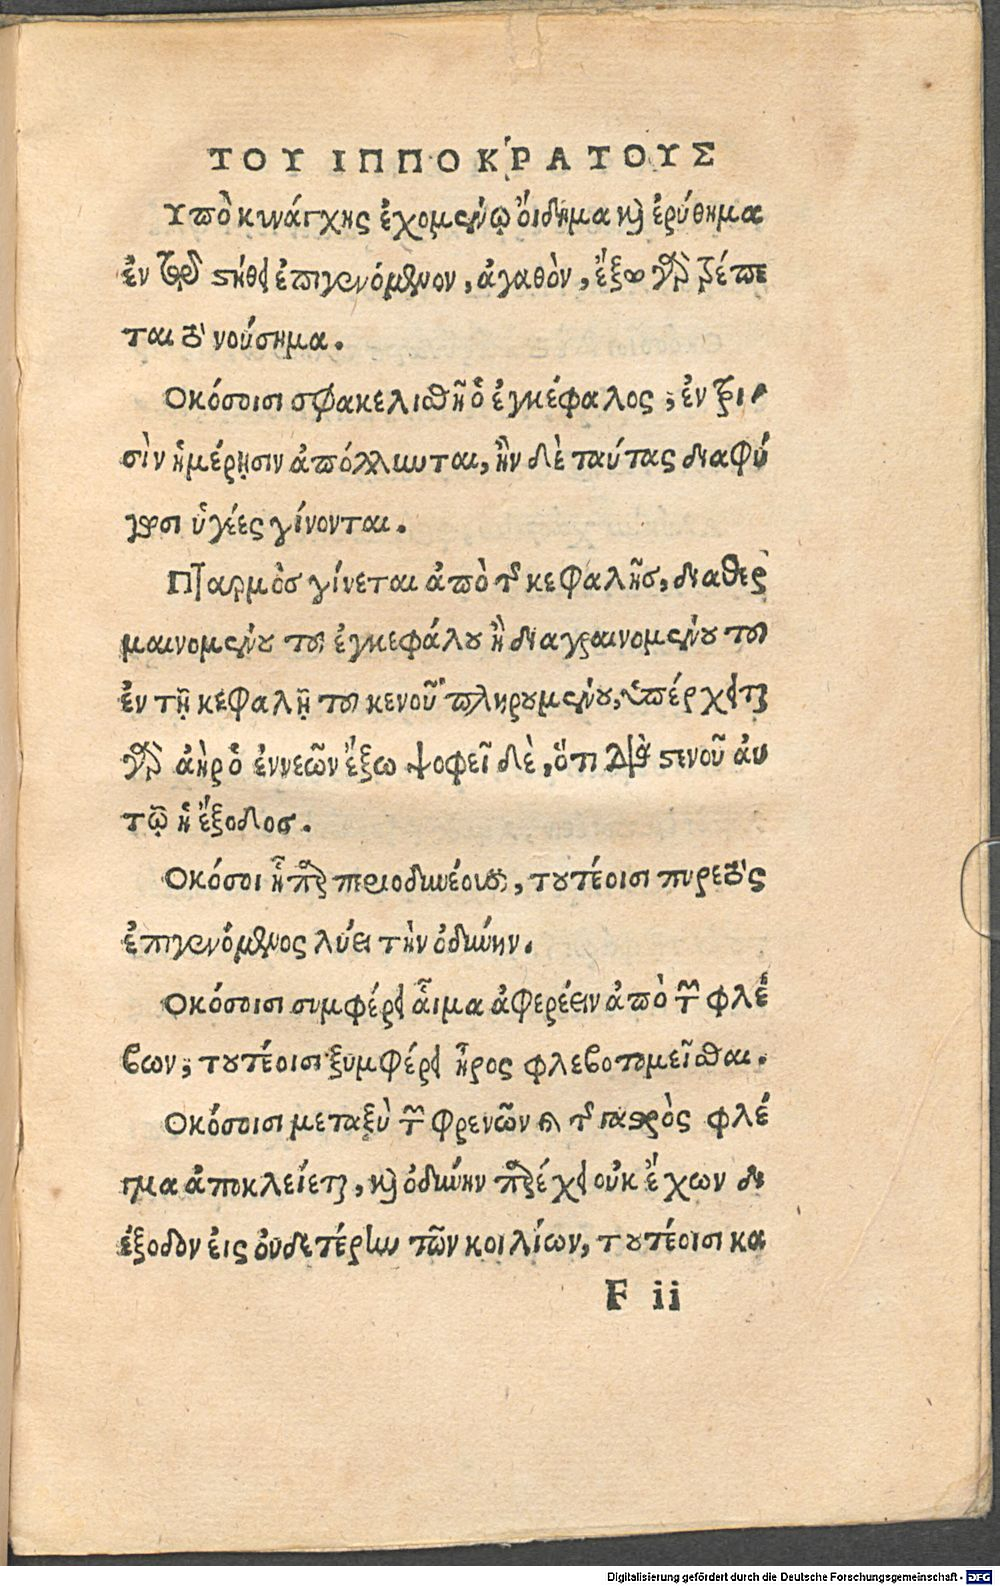 ΤΟΥ ΙΠΠΟΚΡΑΤΟΥΣ
Υπὸ κινάγχης ἐχομένῳ ὄιδημα καὶ ἐρύθημα
ἐν τῷ στήθει ἐπιγενόμενον, ἀγαθὸν, ἔξω γὰρ τρέπε
ται τὸ νούσημα.
Οκόσοισι σφακελισθῆ ὁ ἐγκέφαλος, ἐν τρι
σὶν ἡμέρῃσιν ἀπόλλυνται, ἢν δὲ ταύτας διαφύ
γωσι ὑγιέες γίνονται.
Πταρμὸς γίνεται ἀπὸ τῆς κεφαλῆς, διαθερ
μαινομένου τοῦ ἐγκεφάλου ἢ διαγραινομένου τοῦ
ἐν τῇ κεφαλῇ τοῦ κενοῦ πληρουμένου, ὑπέρχεται
γὰρ ἀὴρ ὁ ἐννεῶν ἔξω ψοφεῖ δὲ, ὅτι διὰ στενοῦ ἀυ
τῷ ἡ ἔξοδος.
Οκόσοι ἧπαρ περιοδυνέουσι, τουτέοισι πυρετὸς
ἐπιγενόμενος λύει τὴν ὀδύνην.
Οκόσοισι συμφέρει ἇιμα ἀφερέειν ἀπὸ τῶν φλε
βων, τουτέοισι ξυμφέρει ἦρος φλεβοτομεῖσθαι.
Οκόσοισι μεταξὺ τῶν φρενῶν καὶ τῆς γαστρὸς φλέ
γμα ἀποκλείεται, καὶ ὀδύνην παρέχει οὐκ ἔχων δι
έξοδον ἐις οὐδετέρην τῶν κοιλίων, τουτέοισι κα
F ii
Digitalisierung gefördert durch die Deutsche Forschungsgemeinschaft - DFG